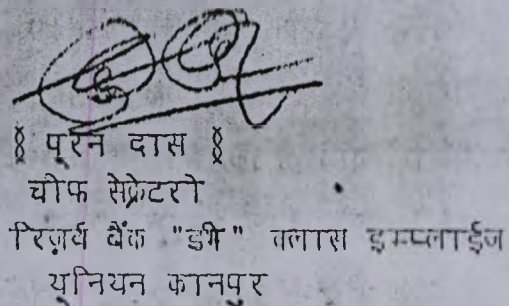 ॥ पूरन दास ॥
चीफ सेक्रेटरी
रिज़र्व बैंक "डी" क्लास इम्प्लाईज
यूनियन कानपुर